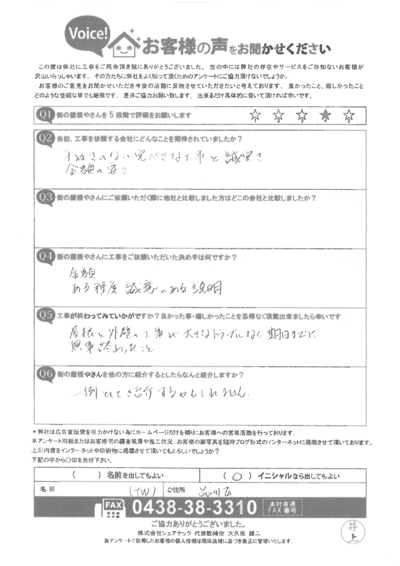 Voice!
お客様の声をお聞かせください
この度は弊社に工事をご用命頂き誠にありがとうございました。世の中には弊社の存在やサービスをご存知ないお客様が
沢山いらっしゃいます。その方たちに弊社をよく知って頂くためのアンケートにご協力頂けないでしょうか。
お客様のご意見をお聞かせいただき今後の活動に反映させていただきたいと考えております。良かったこと、嬉しかったこと
どのような些細な事でも結構です。是非ご協力お願い致します。出来るだけ具体的に書いて頂ければ幸いです。
Q1 街の屋根やさんを5段階で評価をお願いします
☆ ☆ ☆ ★ ☆
Q2 当初、工事を依頼する会社にどんなことを期待されていましたか?
手ぬきのない完ぺきな工事と誠実さ
金額の
Q3 街の屋根やさんにご依頼いただく際に他社と比較しました方はどこの会社と比較しましたか?
Q4 街の屋根やさんに工事をご依頼いただいた決め手は何ですか?
金額
ある程度誠意のある説明
Q5 工事が終わってみていかがですか?良かった事・嬉しかったことを忌憚なく頂戴出来ましたら幸いです
屋根と外壁の工事が大きなトラブルなく期日までに
無事終わったこと
Q6 街の屋根やさんを他の方に紹介するとしたらなんと紹介しますか?
一例として紹介するかもしれません
*弊社は広告宣伝費を極力かけない為にホームページだけを頼りにお客様への営業活動を行っております。
本アンケート用紙またはお客様宅の調査風景や施工状況、お客様の顔写真を随時ブログ形式のインターネットに掲載させて頂いております。
上記内容をインターネットや印刷物に掲載させて頂いて宜しいでしょうか?
下記の中から○印をお付下さい。
( )名前を出してもよい ( ○ )イニシャルなら出してもよい
名前 (TW) ご住所 品川区
FAX 0438-38-3310 本社直通 FAX番号
ご協力ありがとうございました。
株式会社シェアテック 代表取締役 大久保 誠二
当アンケートで取得したお客様の個人情報は関係法規に基づき厳正に管理いたします。
井上